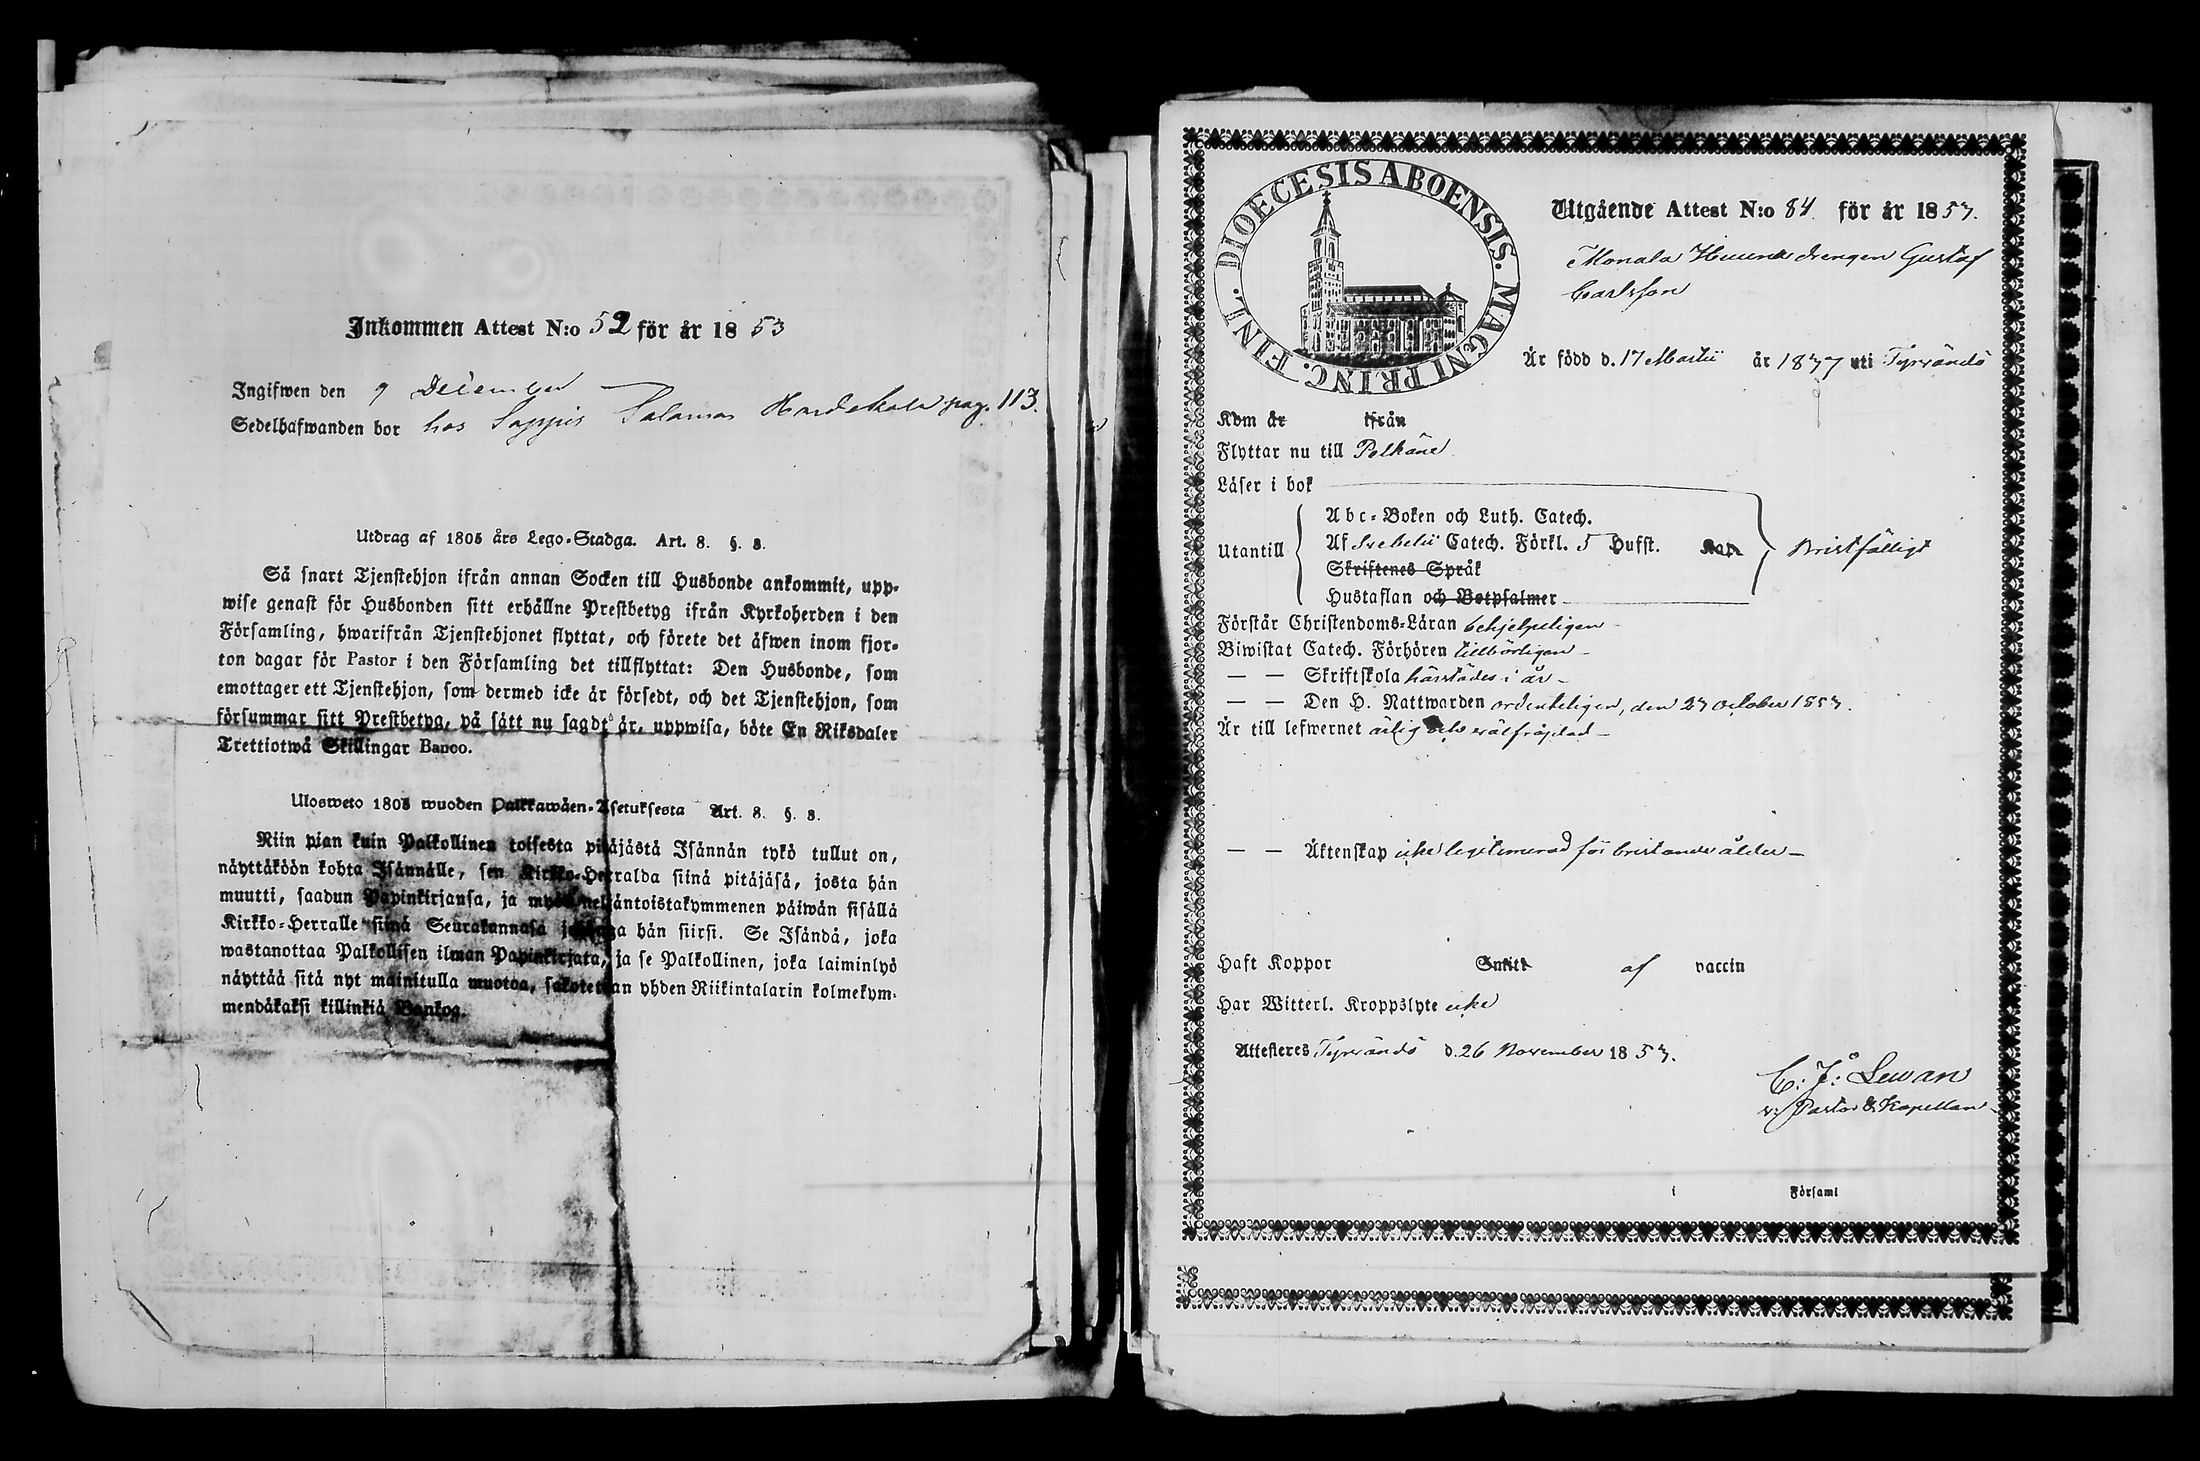 Inkommen Attest N:o 52 för år 1853
Ingifwen den 9 December
Sedelhafwanden bor hos Sappis Salomon Hardokala pag. 113.
Utdrag af 1805 års Lego-Stadga. Art. 8. §. 8.
Så snart Tjenstehjon ifrån annan Socken till Husbonde ankommit, upp-
wise genast för Husbonden sitt erhållne Prestbetyg ifrån Kyrkoherden i den
Församling, hwarifrån Tjenstehjonet flyttat, och förete det äfwen inom fjor-
ton dagar för Pastor i den Församling det tillflyttat: Den Husbonde, som
emottager ett Tjenstehjon, som dermed icke är försedt, och det Tjenstehjon, som
försummar sitt Prestbetyg, på sätt nu sagdt är, uppwisa, böte En Riksdaler
Trettiotwå Skillingar Banco.
Ulosweto 1805 wuoden Palkkawäen-Asetuksesta Art. 8. §. 8.
Niin pian kuin Palkollinen toisesta pitäjästä Isännän tykö tullut on,
näyttäköön kohta Isännälle, sen Kirkko-Herralda siinä pitäjäsä, josta hän
muutti, saadun Papinkirjansa, ja myös neljäntoistakymmenen päiwän sisällä
Kirkko-Herralle siinä Seurakunnasa johonga hän siirsi. Se Isändä, joka
wastanottaa Palkollisen ilman Papinkirjata, ja se Palkollinen, joka laiminlyö
näyttää sitä nyt mainitulla muotoa, sakotetaan yhden Riikintalarin kolmekym-
mendäkaksi killinkiä Bankog.
DIOECESIS ABOENSIS. MAGNI PRINC. FINL.
Utgående Attest N:o 84 för år 1853.
Monala Huuna drengen Gustaf
Carlsson
Är född d. 17 Martii år 1837 uti Tyrvändö
Kom år ifrån
Flyttar nu till Pelkäne
Läser i bok
Abc-Boken och Luth. Catech.
Utantill Af Svebelii Catech. Förkl. 5 Hufst. Kap. Bristfälligt
Skriftenes Språk
Hustaflan och Botpsalmer
Förstår Christendoms-Läran behjelpeligen
Biwistat Catech. Förhören tillbörligen
— — Skriftskola härstädes i år
— — Den H. Nattwarden ordenteligen, den 23 October 1853.
Är till lefwernet ärlig och välfrägdad
— — Äktenskap icke legitimerad för bristande ålder
Haft Koppor Smitt af vaccin
Har Witterl. Kroppslyte icke
Attesteres Tyrvändö d. 26 November 1853.
C: J: Lewan
v: Pastor & Kapellan
i Församl